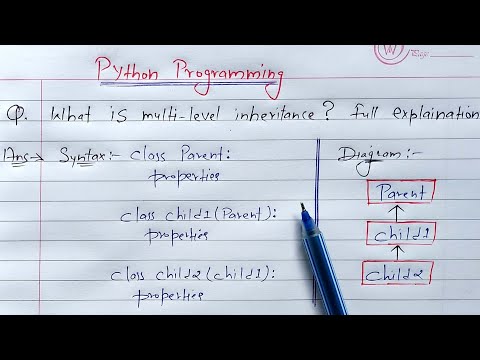 Python Programming
Q. What is multi-level inheritance? full explaination
Ans→ Syntax:- class Parent:
properties
class child1(Parent):
properties
class child2(child1):
properties
Diagram:-
Parent
child1
child2